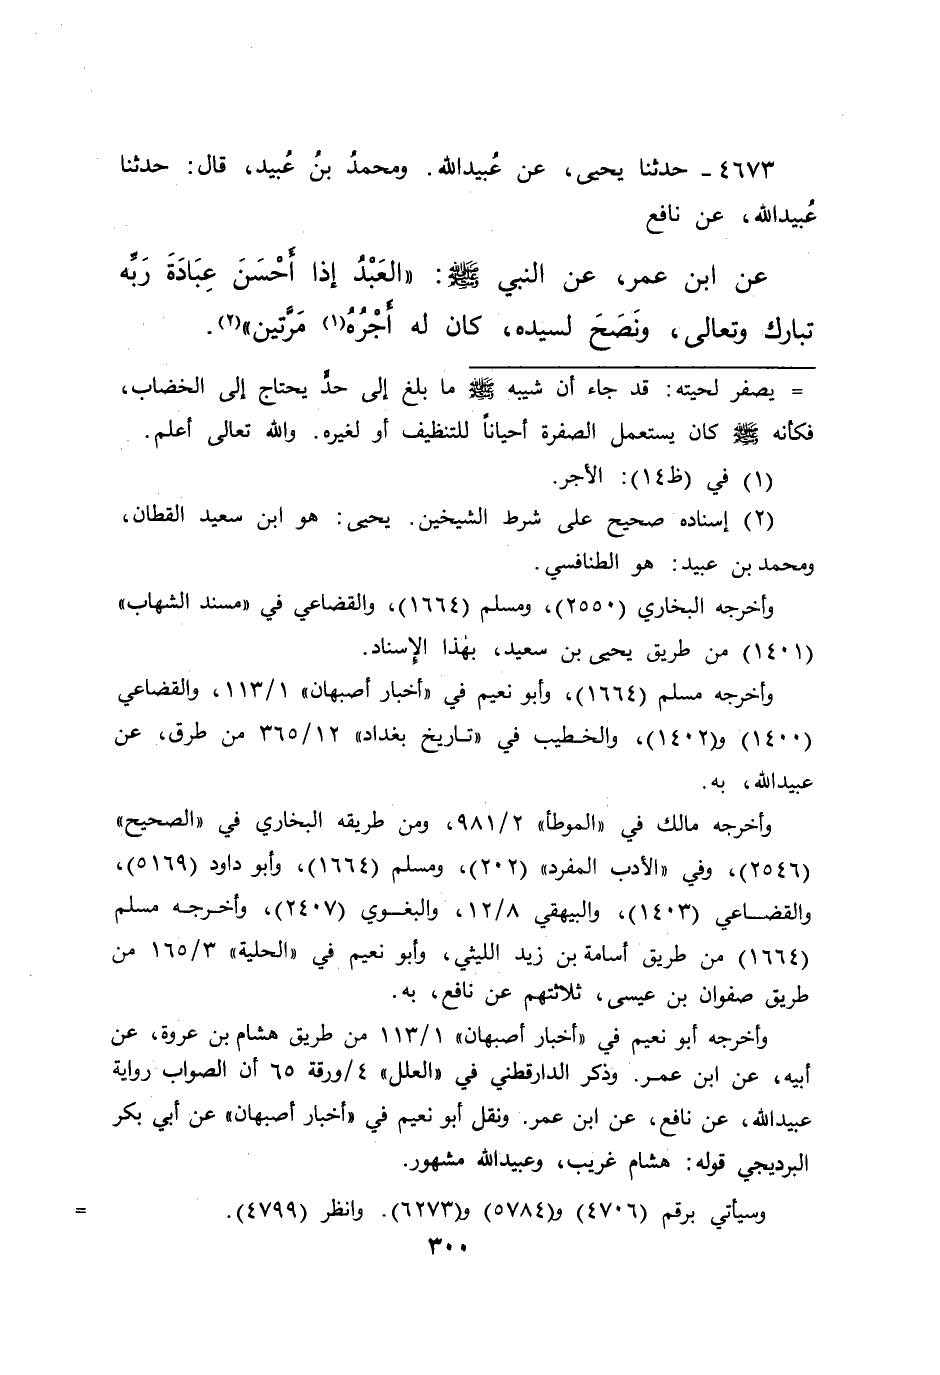 ٤٦٧٣ ـ حدثنا يحيى، عن عُبيدالله. ومحمدُ بنُ عُبيد، قال: حدثنا
عُبيدالله، عن نافع
عن ابن عمر، عن النبي ﷺ: «العَبْدُ إذا أَحْسَنَ عِبَادَةَ رَبِّه
تبارك وتعالى، ونَصَحَ لسيده، كان له أَجْرُهُ(١) مَرَّتين»(٢).
= يصفر لحيته: قد جاء أن شيبه ﷺ ما بلغ إلى حدٍّ يحتاج إلى الخضاب،
فكأنه ﷺ كان يستعمل الصفرة أحياناً للتنظيف أو لغيره. والله تعالى أعلم.
(١) في (ظ١٤): الأجر.
(٢) إسناده صحيح على شرط الشيخين. يحيى: هو ابن سعيد القطان،
ومحمد بن عبيد: هو الطنافسي.
وأخرجه البخاري (٢٥٥٠)، ومسلم (١٦٦٤)، والقضاعي في «مسند الشهاب»
(١٤٠١) من طريق يحيى بن سعيد، بهٰذا الإِسناد.
وأخرجه مسلم (١٦٦٤)، وأبو نعيم في «أخبار أصبهان» ١١٣/١، والقضاعي
(١٤٠٠) و(١٤٠٢)، والخطيب في «تاريخ بغداد» ٣٦٥/١٢ من طرق، عن
عبيدالله، به.
وأخرجه مالك في «الموطأ» ٩٨١/٢، ومن طريقه البخاري في «الصحيح»
(٢٥٤٦)، وفي «الأدب المفرد» (٢٠٢)، ومسلم (١٦٦٤)، وأبو داود (٥١٦٩)،
والقضاعي (١٤٠٣)، والبيهقي ١٢/٨، والبغوي (٢٤٠٧)، وأخرجه مسلم
(١٦٦٤) من طريق أسامة بن زيد الليثي، وأبو نعيم في «الحلية» ١٦٥/٣ من
طريق صفوان بن عيسى، ثلاثتهم عن نافع، به.
وأخرجه أبو نعيم في «أخبار أصبهان» ١١٣/١ من طريق هشام بن عروة، عن
أبيه، عن ابن عمر. وذكر الدارقطني في «العلل» ٤/ورقة ٦٥ أن الصواب رواية
عبيدالله، عن نافع، عن ابن عمر. ونقل أبو نعيم في «أخبار أصبهان» عن أبي بكر
البرديجي قوله: هشام غريب، وعبيدالله مشهور.
وسيأتي برقم (٤٧٠٦) و(٥٧٨٤) و(٦٢٧٣). وانظر (٤٧٩٩). =
٣٠٠